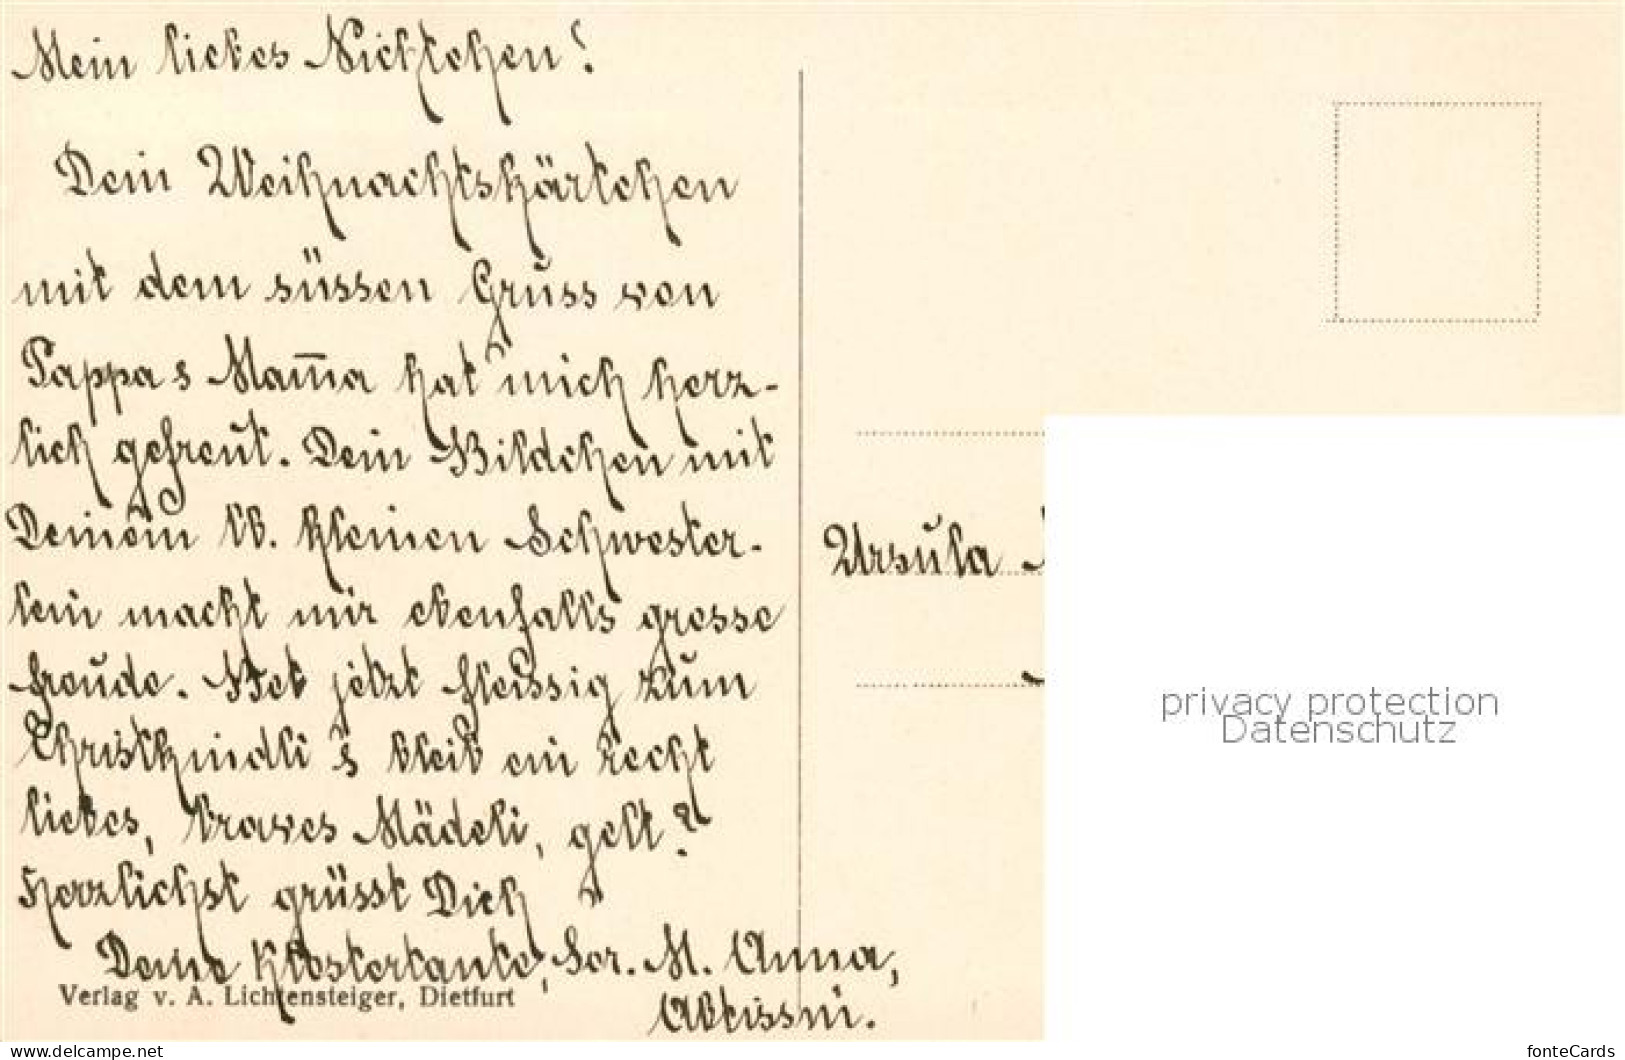 Mein liebes Nichtchen!
Dein Weihnachtskärtchen
mit dem süssen Gruss von
Pappa & Mam̅a hat mich herz-
lich gefreut. Dein Bildchen mit
Deinem lb. kleinen Schwester-
lein macht mir ebenfalls grosse
Freude. Bet jetzt fleissig zum
Christkindli & bleib ein recht
liebes, braves Mädeli, gelt?
Herzlichst grüsst Dich
Deine Klostertante, Sor. M. Anna,
Äbtissin.
Verlag v. A. Lichtensteiger, Dietfurt
Ursula
privacy protection
Datenschutz
www.delcampe.net
fonteCards